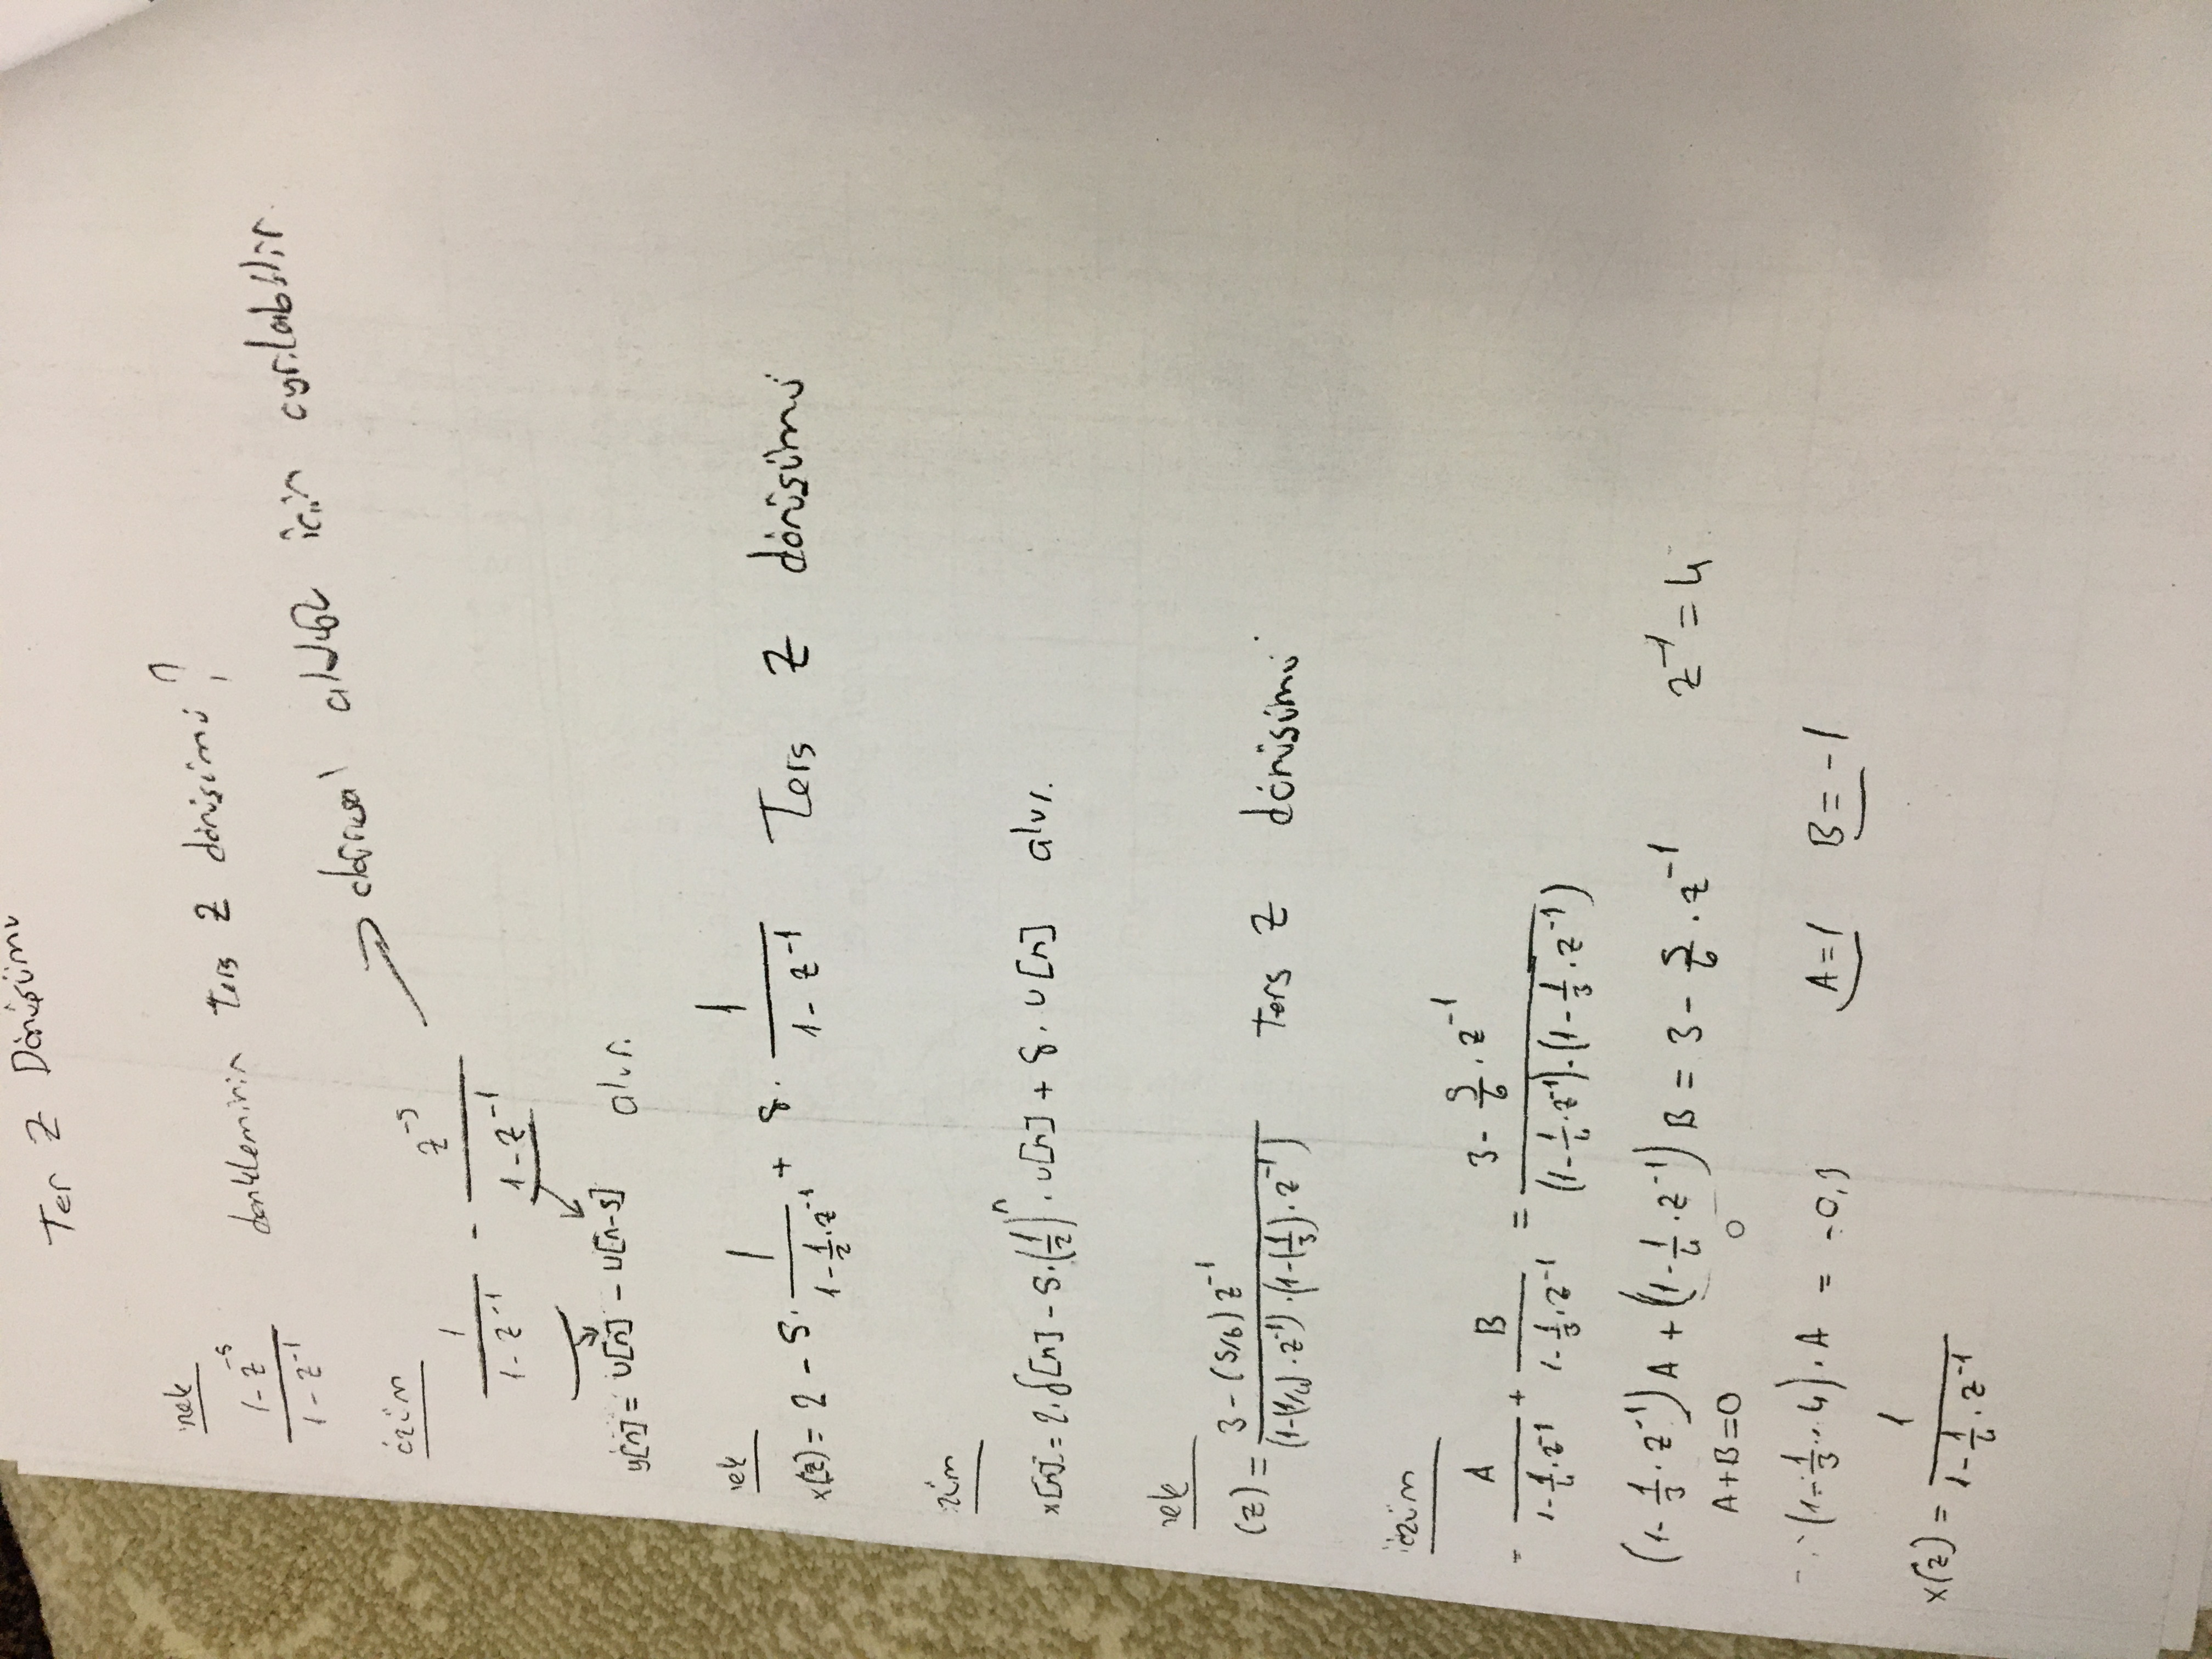 Ter Z Dönüşümü
rnek
1-z^-5 / 1-z^-1 denkleminin Ters Z dönüşümü?
özüm
1 / 1-z^-1 - z^-5 / 1-z^-1 → doğrusal olduğu için ayrılabilir.
y[n] = u[n] - u[n-5] olur.
rek
x(z) = 2 - 5 . 1 / 1-1/2.z^-1 + 8 . 1 / 1-z^-1 Ters Z dönüşümü
züm
x[n] = 2.δ[n] - 5.(1/2)^n . u[n] + 8. u[n] olur.
rek
(z) = 3-(5/6)z^-1 / (1-(1/4).z^-1).(1-(1/3).z^-1) Ters Z dönüşümü
özüm
= A / 1-1/4.z^-1 + B / 1-1/3.z^-1 = 3-5/6.z^-1 / (1-1/4.z^-1).(1-1/3.z^-1)
(1-1/3.z^-1)A + (1-1/4.z^-1)B = 3-5/6.z^-1 z^-1=4
A+B=0 0
(1-1/3.4).A = -0,3 A=1 B=-1
x(z) = 1 / 1-1/4.z^-1